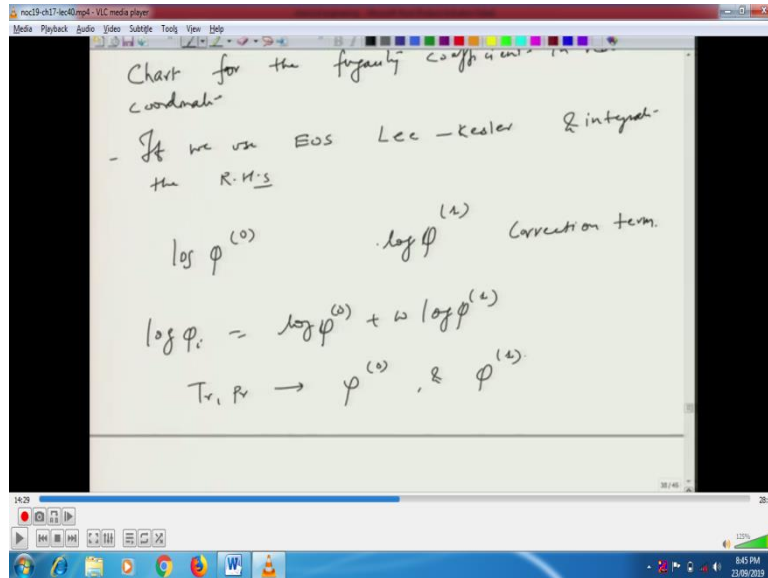 noc19-ch17-lec40.mp4 - VLC media player
Media Playback Audio Video Subtitle Tools View Help
Chart for the fugacity coefficient in
coordinat-
- If we use EOS Lee-Kesler & integrat-
the R.H.S
log φ^(0) log φ^(1) Correction term.
log φi = log φ^(0) + ω log φ^(1)
Tr, Pr → φ^(0), & φ^(1).
38/46
14:29
28:
125%
8:45 PM
23/09/2019